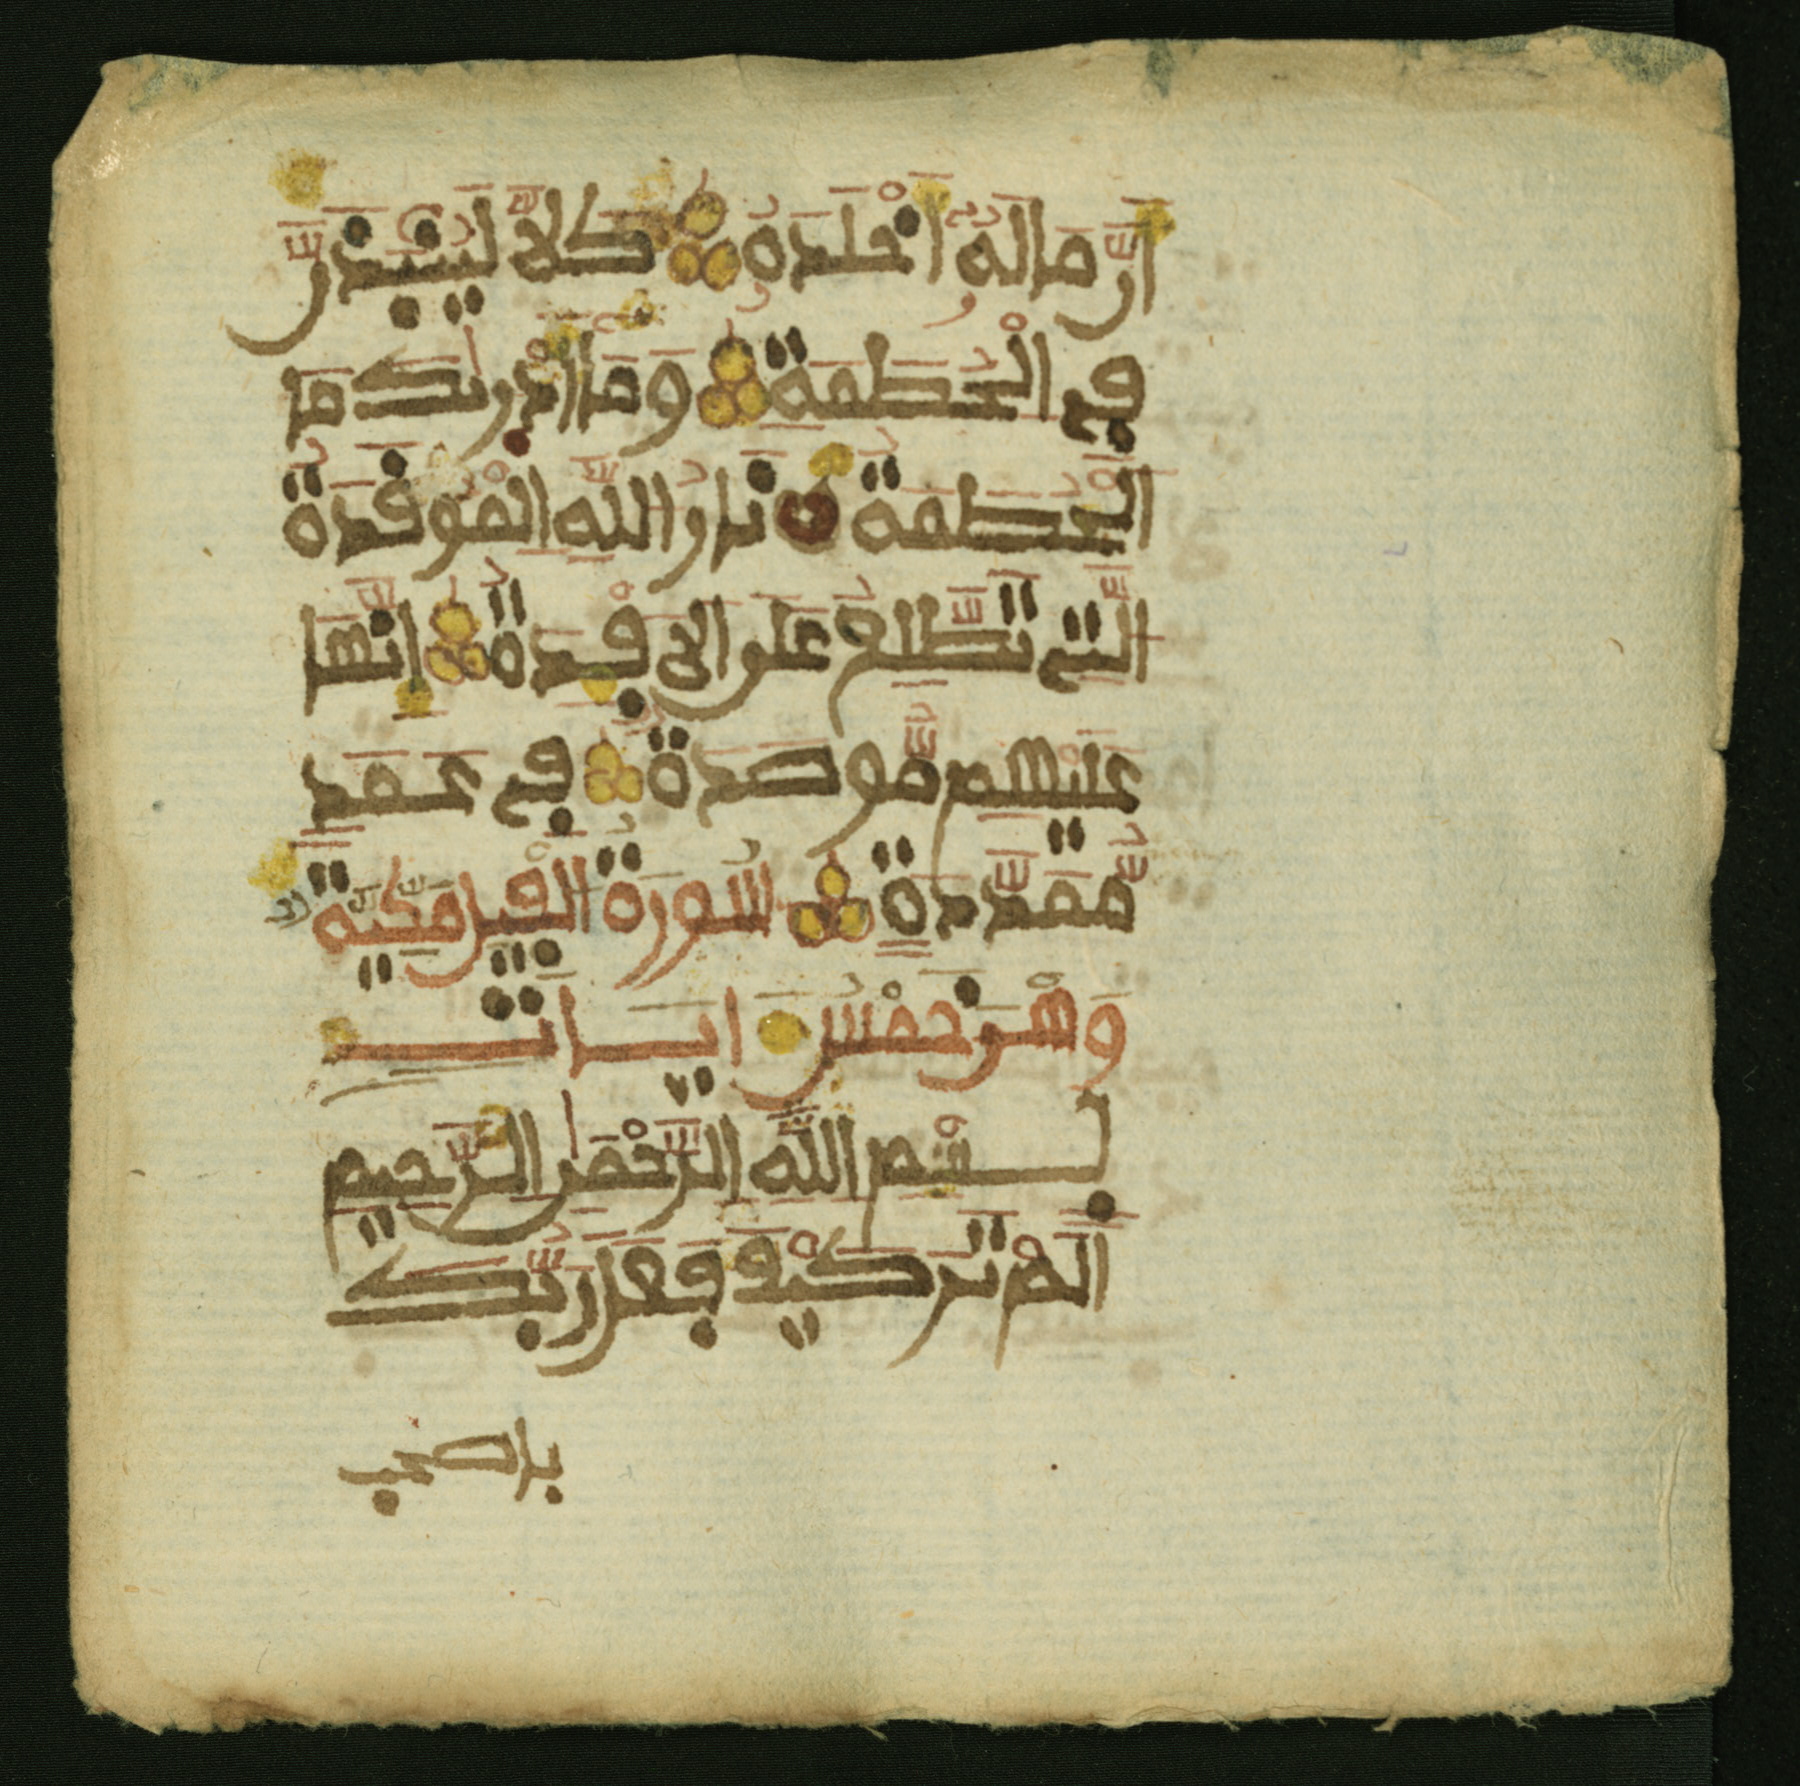 أنّ ماله أخلده كلّا لينبذنّ
في الحطمة وما أدريك ما
الحطمة نار الله الموقدة
الّتي تطّلع على الافـدة إنّها
عليهم مّوصدة في عمد
مّمدّدة سورة الفيل مكّيّة
وهي خمس ايات
بسم الله الرّحمن الرّحيم
ألم تر كيف فعل ربّك
باصحب